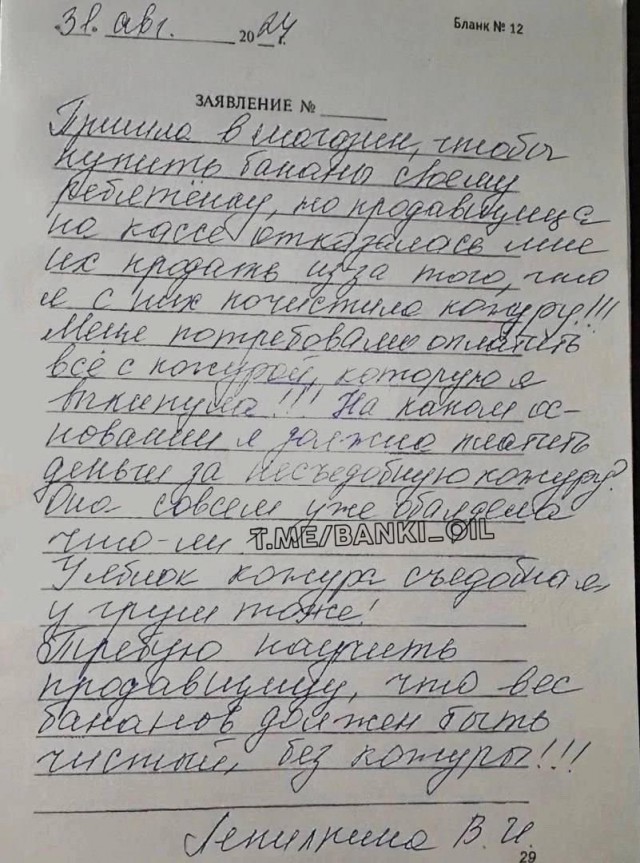 31. авг. 2024 г.
Бланк № 12
ЗАЯВЛЕНИЕ № ______
Пришла в магазин, чтобы
купить бананы своему
ребятёнку, но продавщица
на кассе отказалась мне
их продать из за того, что
я с них почистила кожуру!!!
Меня потребовали оплатить
всё с кожурой, которую я
выкинула!!! На каком ос-
новании я должна платить
деньги за несъедобную кожуру?
Она совсем уже обалдела
что-ли.
T.ME/BANKI_OIL
У яблок кожура съедобная,
у груш тоже!
Требую научить
продавщицу, что вес
бананов должен быть
чистый, без кожуры!!!
Лепилкина В. И.
29